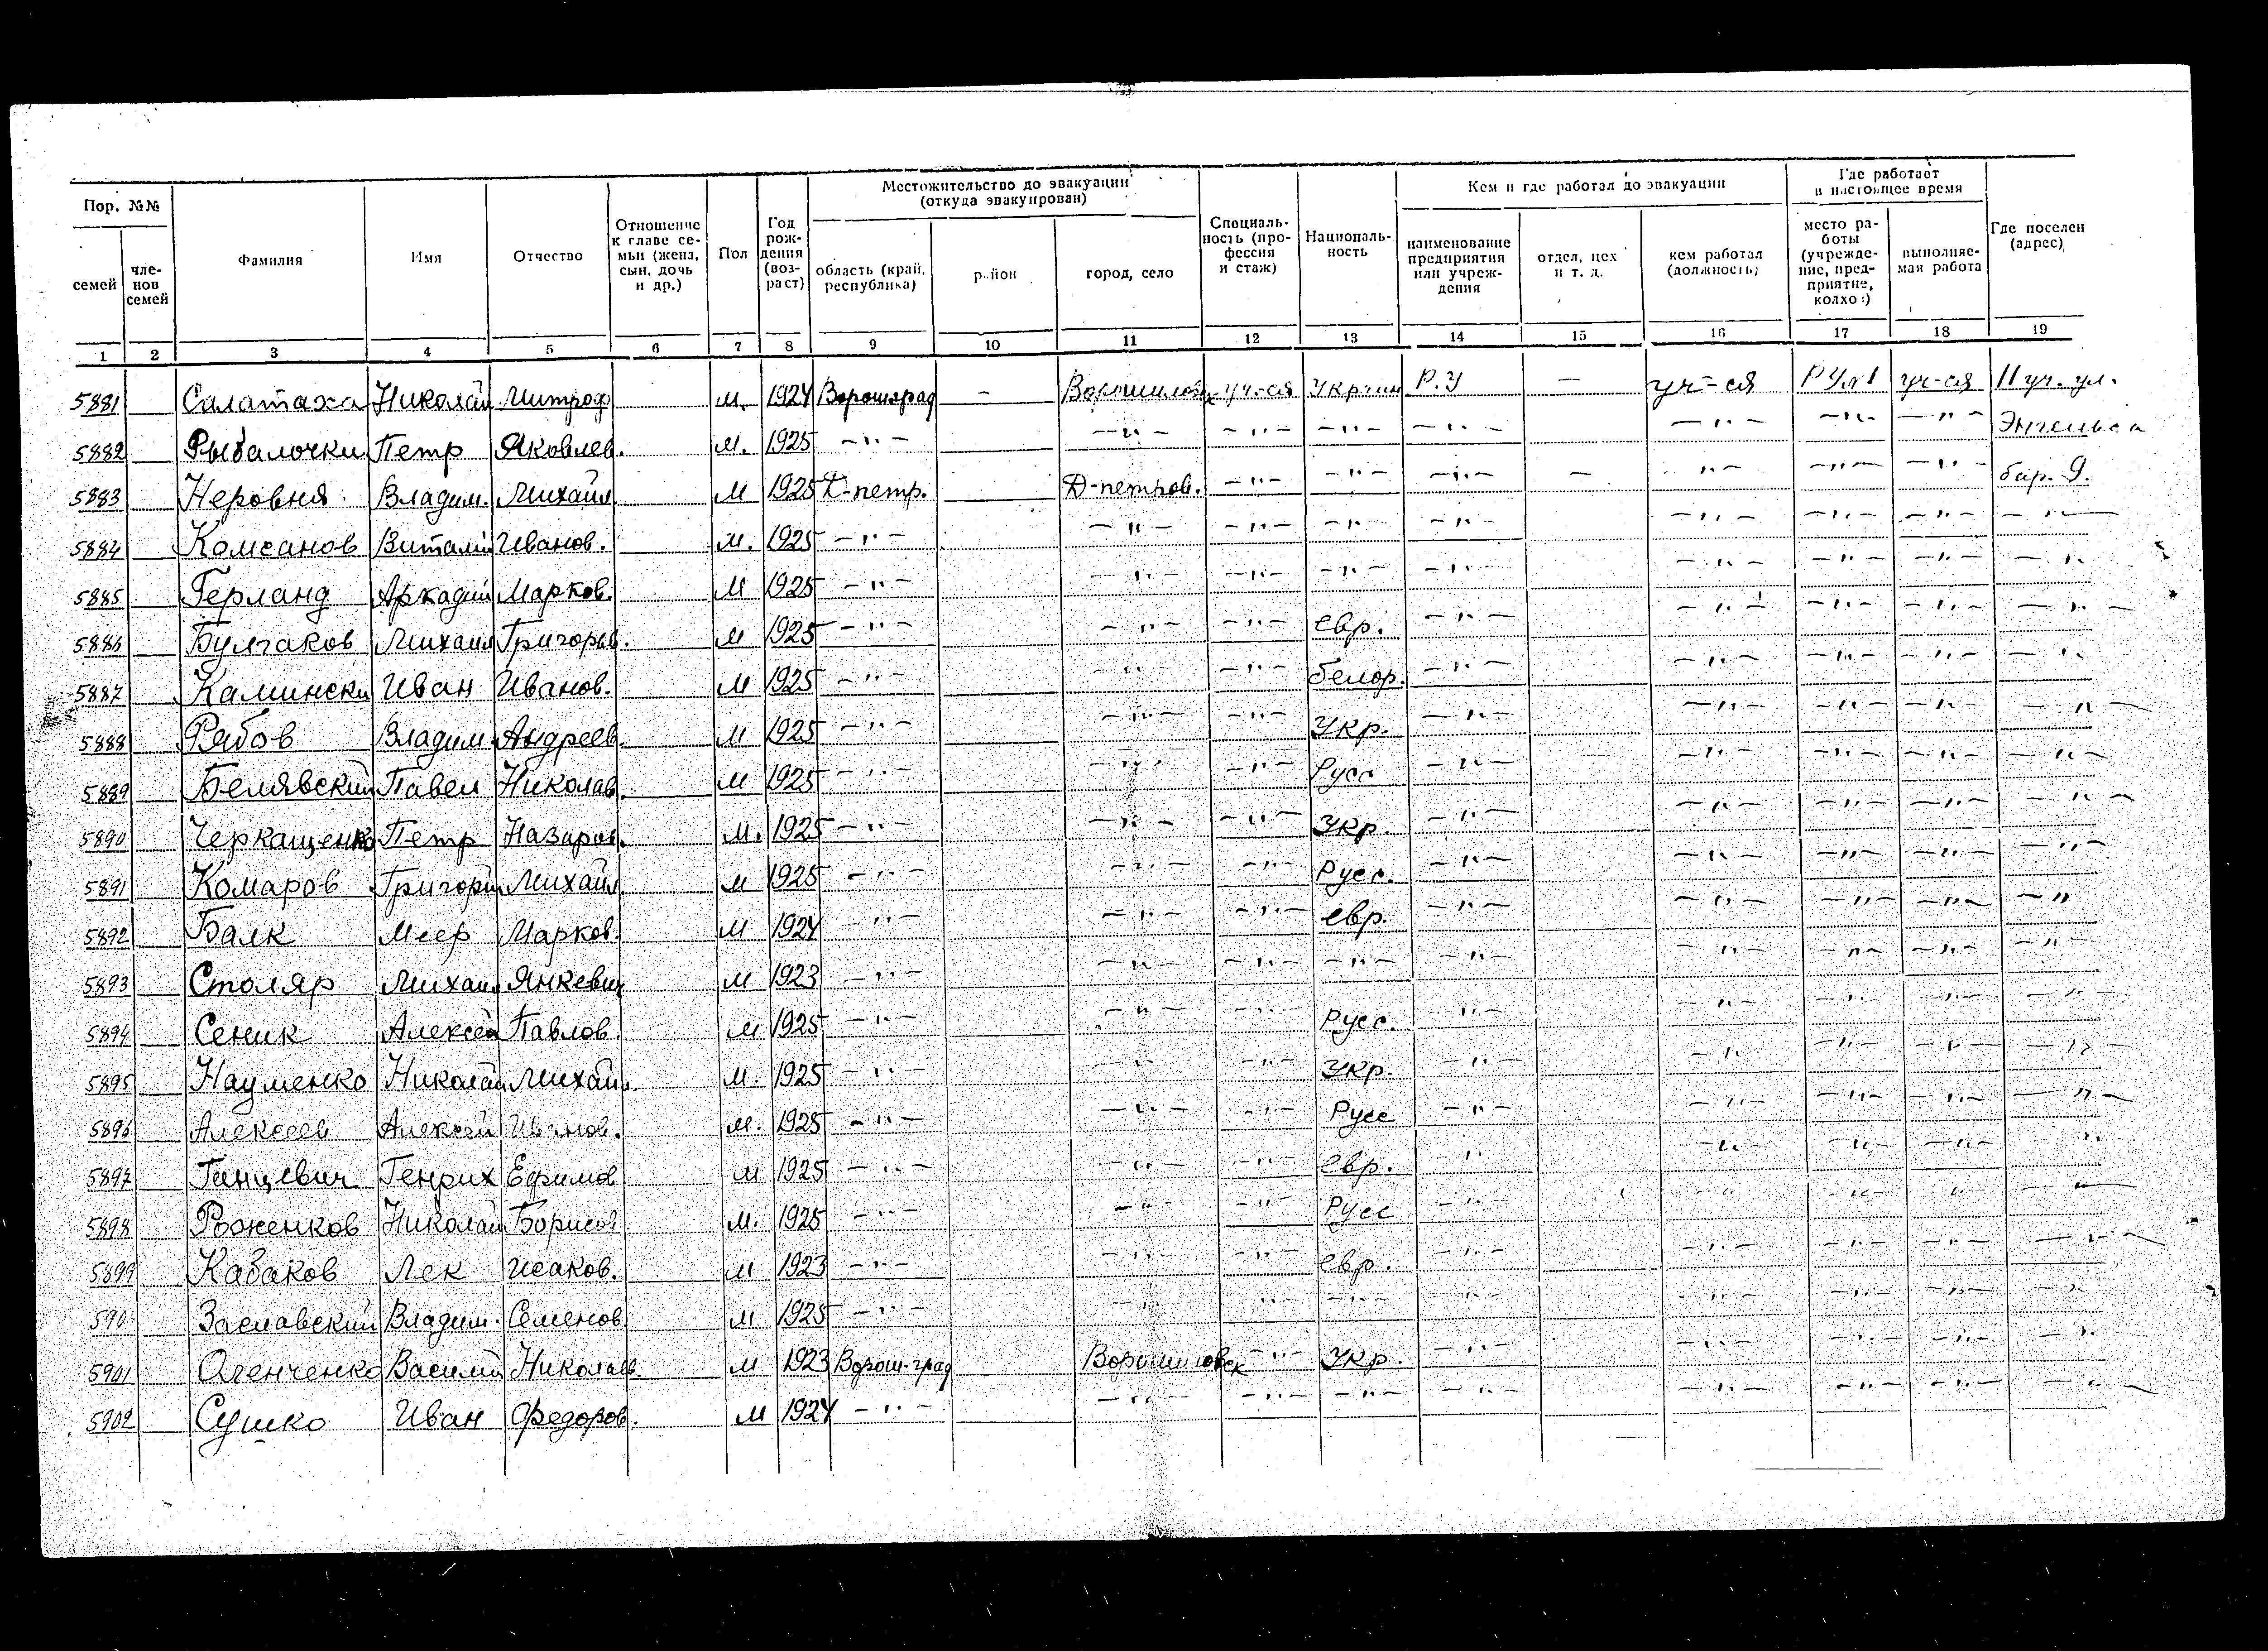 Пор. №№ Фамилия Имя Отчество Отношение к главе семьи (жена, сын, дочь и др.) Пол Год рождения (возраст) Местожительство до эвакуации (откуда эвакуирован) Специальность (профессия и стаж) Националь-ность Кем и где работал до эвакуации Где работает в настоящее время Где поселен (адрес)
семей членов семей область (край, республика) район город, село наименование предприятия или учреждения отдел, цех и т. д. кем работал (должность) место работы (учреждение, предприятие, колхоз) выполняемая работа
1 2 3 4 5 6 7 8 9 10 11 12 13 14 15 16 17 18 19
5881 Салатаха Николай Митроф м. 1924 — уч-ся Украин Р.У — уч-ся РУ№1 уч-ся 11 уч. ул.
5882 Рыбалочки Петр Яковлев. м. 1925 —"— —"— —"— —"— —"— —"— —"— —"— Энгельса
5883 Неровня Владим. Михайл. м 1925 Д-петр. Д-петров. —"— —"— —"— — —"— —"— —"— бар. 9.
5884 Комсанов Виталий Иванов. м. 1925 —"— —"— —"— —"— —"— —"— —"— —"— —"—
5885 Герланд Аркадий Марков. м 1925 —"— —"— —"— —"— —"— —"— —"— —"— —"
5886 Булгаков Михаил Григорьев. м 1925 —"— —"— —"— евр. —"— —"— —"— —"— —"—
5887 Камински Иван Иванов. м 1925 —"— —"— —"— белор. —"— —"— —"— —"— —"
5888 Рябов Владим. Андреев. м 1925 —"— —"— —"— Укр. —"— —"— —"— —"— —"—
5889 Белявский Павел Николав. м 1925 —"— —"— —"— Русс —"— —"— —"— —"— —"—
5890 Черкащенко Петр Назаров. м. 1925 —"— —"— —"— Укр. —"— —"— —"— —"— —"—
5891 Комаров Григорий Михайл м 1925 —"— —"— —"— Русс. —"— —"— —"— —"— —"—
5892 Балк Меер Марков. м 1924 —"— —"— —"— евр. —"— —"— —"— —"— —"
5893 Столяр Михаил Янкевич м 1923 —"— —"— —"— —"— —"— —"— —"— —"— —"—
5894 Сеник Алексей Павлов. м 1925 —"— —"— —"— Русс. —"— —"— —"— —"— —"—
5895 Науменко Николай Михайл. м. 1925 —"— —"— —"— Укр. —"— —"— —"— —"— —"—
5896 Алексеев Алексей Иванов. м. 1925 —"— —"— —"— Русс —"— —"— —"— —"— —"—
5897 Ганцевич Генрих Ефимов м 1925 —"— —"— —"— евр. " —"— —"— —"— "
5898 Роженков Николай Борисов м. 1925 —"— —"— —"— Русс —"— —"— —"— " —"—
5899 Кабаков Лек Исаков. м 1923 —"— —"— —"— евр. —"— —"— —"— —"— —"—
590 Заславский Владим. Семенов. м 1925 —"— —"— —"— —"— —"— —"— —"— —"— —"
5901 Василий Николаев. м 1923 Ворош-град Ворошиловск —"— Укр. —"— —"— —"— —"— —"
5902 Сушко Иван Федоров. м 1924 —"— —"— —"— —"— —"— —"— —"— —"— —"—